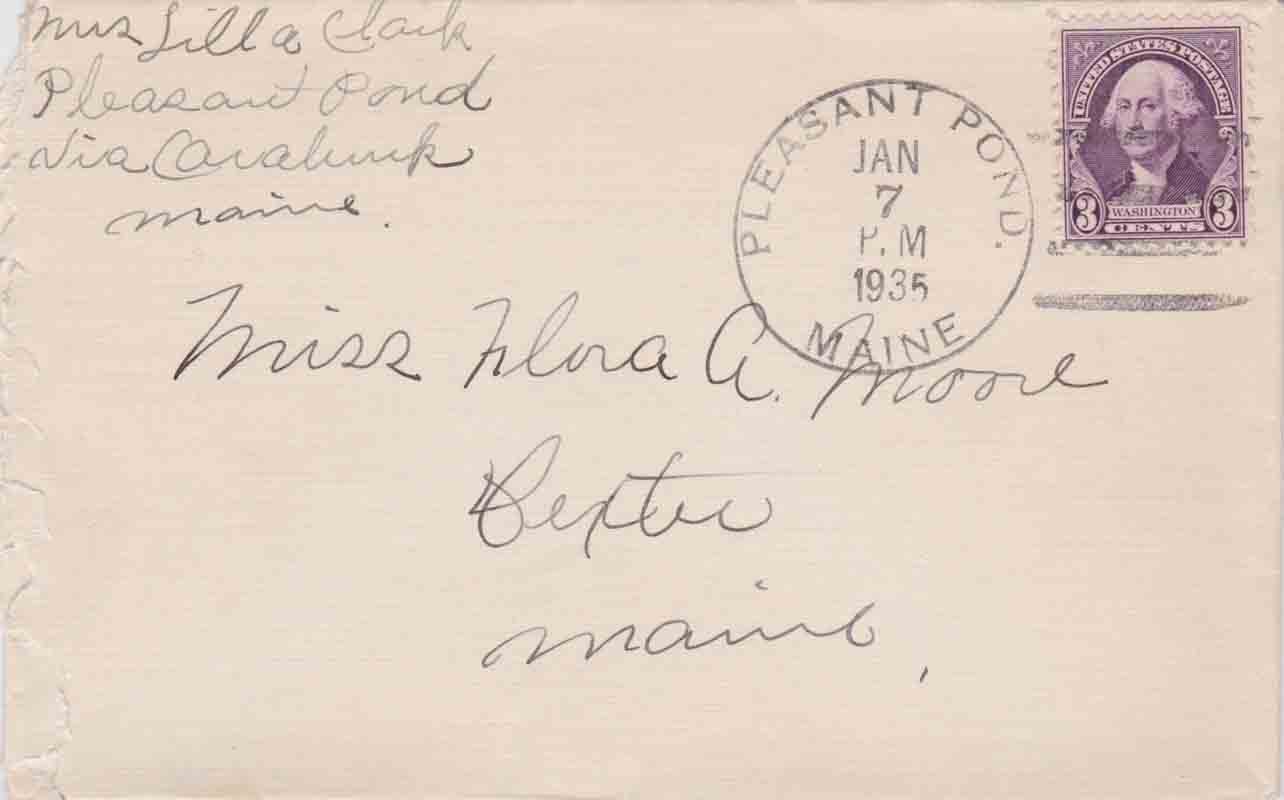 Mrs Lilla Clark
Pleasant Pond
Via Caratunk
Maine.
PLEASANT POND.
JAN
7
P.M
1935
MAINE
UNITED STATES POSTAGE
3 WASHINGTON 3
CENTS
Miss Flora A. Moore
Dexter
Maine,